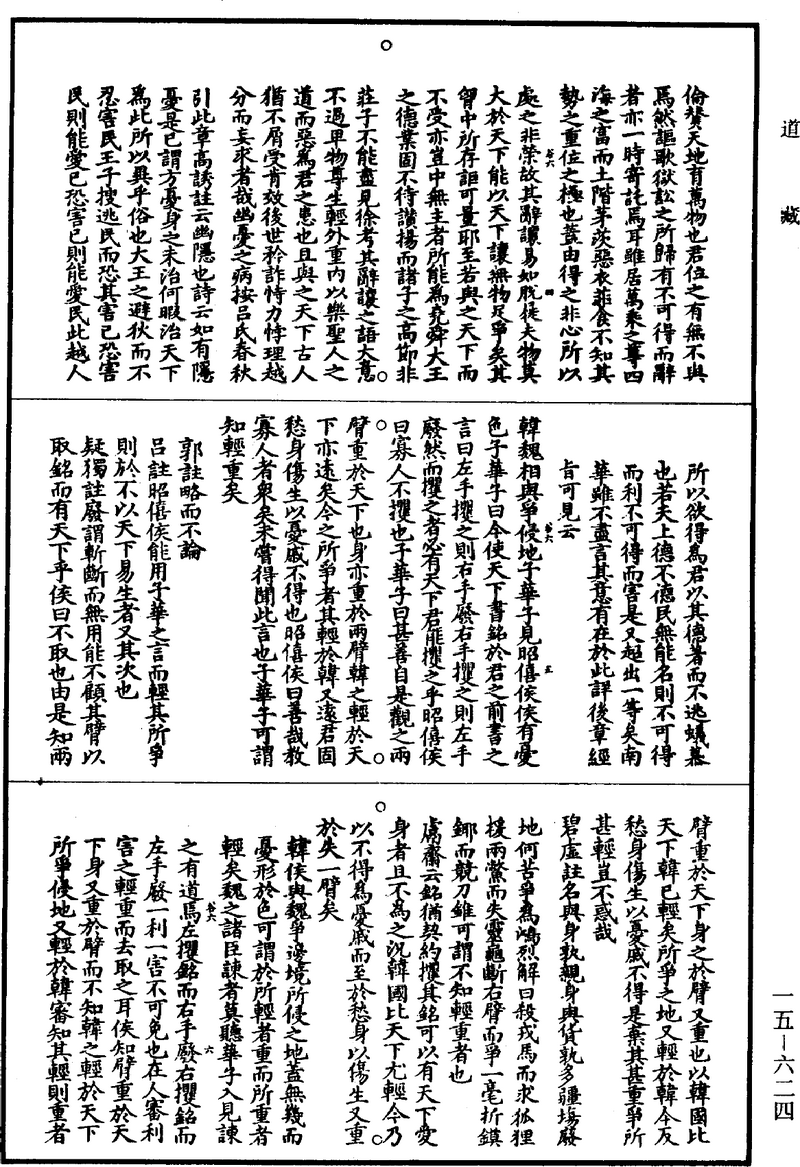 道藏
倫贊天地育萬物也君位之有無不與
焉然謳歌獄訟之所歸有不可得而辭
者亦一時寄託焉耳雖居萬乘之尊四
海之富而土階茅茨惡衣菲食不知其
勢之重位之極也蓋由得之非心所以
處之非榮故其辭讓易如脫屣夫物莫
大於天下能以天下讓無物足爭矣其
胷中所存詎可量耶至若與之天下而
不受亦豈中無主者所能為堯舜大王
之德業固不待讚揚而諸子之高節非
莊子不能盡見徐考其辭讓之語大意
不過卑物尊生輕外重內以樂聖人之
道而惡為君之患也且與之天下古人
猶不屑受肯效後世矜詐恃力悖理越
分而妄求者哉幽憂之病按呂氏春秋
引此章高誘註云幽隱也詩云如有隱
憂是已謂方憂身之未治何暇治天下
為此所以異乎俗也大王之避狄而不
忍害民王子搜逃民而恐其害已恐害
民則能愛已恐害已則能愛民此越人
所以欲得為君以其德著而不逃蟻慕
也若夫上德不德民無能名則不可得
而利不可得而害是又超出一等矣南
華雖不盡言其意有在於此詳後章經
旨可見云
韓魏相與爭侵地子華子見昭僖侯侯有憂
色子華子曰今使天下書銘於君之前書之
言曰左手攫之則右手廢右手攫之則左手
廢然而攫之者必有天下君能攫之乎昭僖侯
曰寡人不攫也子華子曰甚善自是觀之兩
臂重於天下也身亦重於兩臂韓之輕於天
下亦遠矣今之所爭者其輕於韓又遠君固
愁身傷生以憂戚不得也昭僖侯曰善哉教
寡人者衆矣未嘗得聞此言也子華子可謂
知輕重矣
郭註略而不論
呂註昭僖侯能用子華之言而輕其所爭
則於不以天下易生者又其次也
疑獨註廢謂斬斷而無用能不顧其臂以
取銘而有天下乎侯曰不取也由是知兩
臂重於天下身之於臂又重也以韓國比
天下韓已輕矣所爭之地又輕於韓今反
愁身傷生以憂戚不得是棄其甚重爭所
甚輕豈不惑哉
碧虛註名與身孰親身與貨孰多疆場發
地何苦爭為鴻烈解曰殺戎馬而求狐狸
援兩鱉而失靈龜斷右臂而爭一毫折鏌
鋣而競刀錐可謂不知輕重者也
鬳齋云銘猶契約攫其銘可以有天下愛
身者且不為之況韓國比天下尤輕今乃
以不得為憂戚而至於愁身以傷生又重
於失一臂矣
韓侯與魏爭邊境所侵之地蓋無幾而
憂形於色可謂於所輕者重而所重者
輕矣魏之諸臣諫者莫聽華子入見諫
之有道焉左攫銘而右手廢右攫銘而
左手廢一利一害不可免也在人審利
害之輕重而去取之耳侯知臂重於天
下身又重於臂而不知韓之輕於天下
所爭侵地又輕於韓審知其輕則重者
一五－六二四